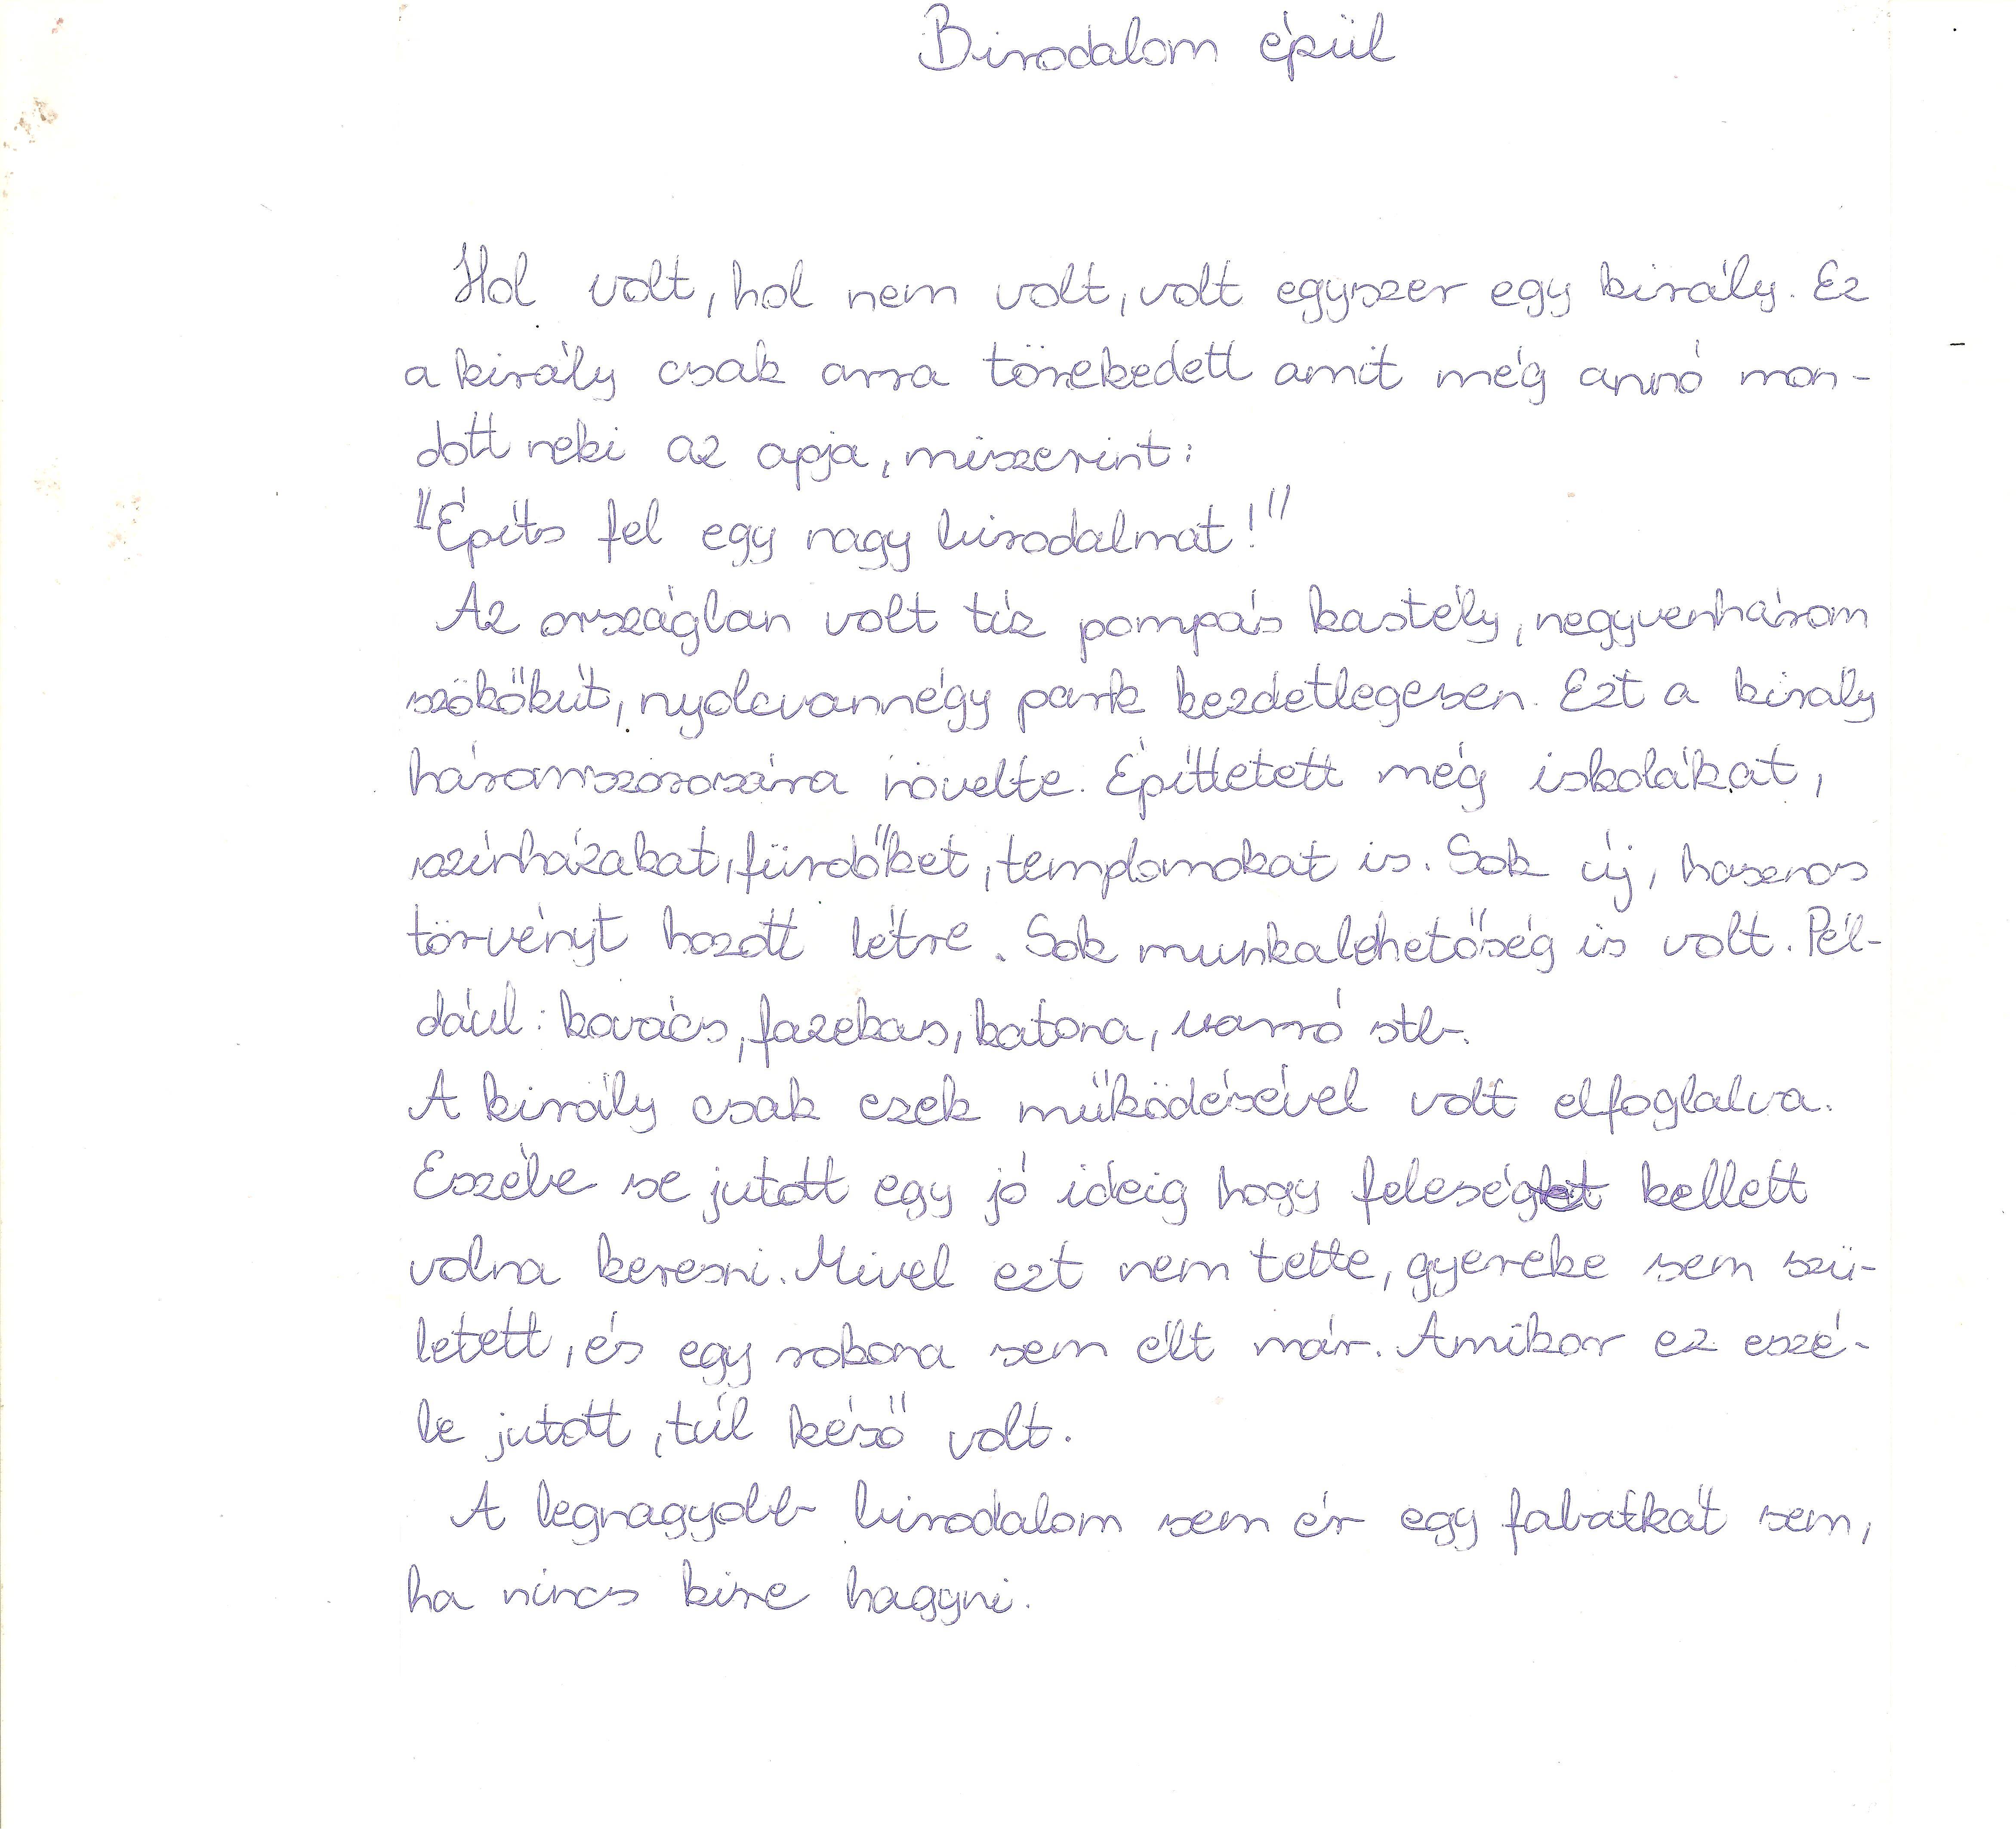 Birodalom épül
Hol volt, hol nem volt, volt egyszer egy király. Ez
a király csak arra törekedett amit még annó mon-
dott neki az apja, miszerint:
"Építs fel egy nagy birodalmat!"
Az országban volt tíz pompás kastély, negyvenhárom
szökőkút, nyolcvannégy park kezdetlegesen. Ezt a király
háromszorosára növelte. Építtetett még iskolákat,
színházakat, fürdőket, templomokat is. Sok új, hasznos
törvényt hozott létre. Sok munkalehetőség is volt. Pél-
dául: kovács, fazekas, katona, varró stb.
A király csak ezek működésével volt elfoglalva.
Eszébe se jutott egy jó ideig hogy feleséget kellett
volna keresni. Mivel ezt nem tette, gyereke sem szü-
letett, és egy rokona sem élt már. Amikor ez eszé-
be jutott, túl késő volt.
A legnagyobb birodalom sem ér egy fabatkát sem,
ha nincs kire hagyni.